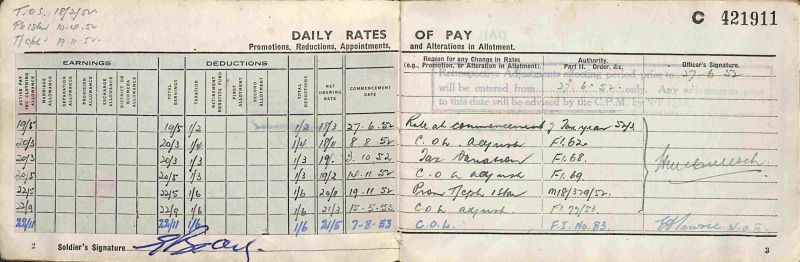 T.O.S. 18/2/52.
T/Cpl 19.11.52.
C 421911
DAILY RATES OF PAY
Promotions, Reductions, Appointments, and Alterations in Allotment.
EARNINGS
DEDUCTIONS
Reason for any Change in Rates
(e.g., Promotion, or Alteration in Allotment).
Authority.
Part II. Order. &c.
Officer's Signature.
ACTIVE PAY INC. CLOTHING ALLOWANCE
MARRIAGE ALLOWANCE
SEPARATION ALLOWANCE
PROVISION ALLOWANCE
EXCHANGE ALLOWANCE
DISTRICT OR ALLOWANCE
TOTAL EARNINGS
TAXATION
RETIREMENT BENEFITS FUND
FIRST ALLOTMENT
SECOND ALLOTMENT
TOTAL DEDUCTIONS
NET DRAWING RATE
COMMENCEMENT DATE
Retrospective Adjustments affecting period prior to 27-6-52
will be entered from 27-6-52 only. Any adjustments
to this date will be advised by the C.P.M. by
19/5 19/5 1/2 1/2 18/3 27.6.52 Rate at commencement of Tax year 52/3
20/3 20/3 1/4 1/4 18/11 8 8 52 C.O.L. adjust. F1.62.
20/3 20/3 1/3 1/3 19/- 3.10 52 Tax Variation F1.68.
20/5 20/5 1/3 1/3 19/2 14.11.52 C.O.L. adjust F1.69.
22/5 22/5 1/6 1/6 20/11 19.11.52 Prom T/Cpl M18/379/52.
22/9 22/9 1/6 1/6 21/3 15.5.53 C.O.L. adjust. F1.77/53.
22/11 22/11 1/6 1/6 21/5 7-8-53 C.O.L. F.I. No. 83.
2 Soldier's Signature
3